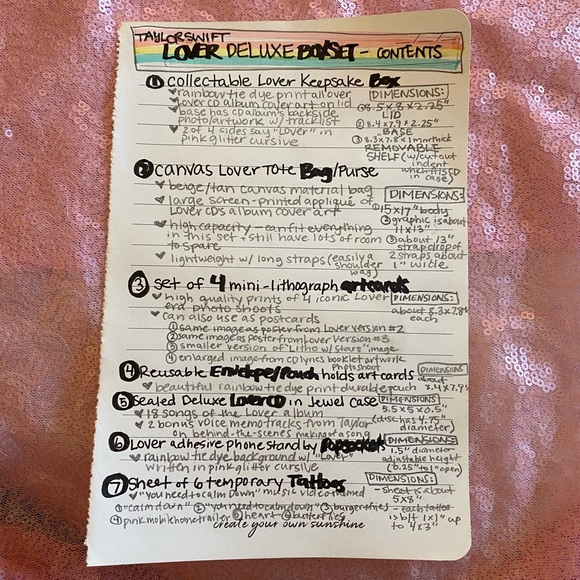 TAYLOR SWIFT
LOVER DELUXE BOXSET - CONTENTS
① collectable Lover Keepsake Box
♥ rainbow tie dye print all over
♥ Lover CD album cover art on lid
♥ base has CD album's backside
photo/artwork w/ tracklist
♥ 2 of 4 sides say "Lover" in
pink glitter cursive
DIMENSIONS:
① 8.5 x 8 x 2.25"
LID
② 8.4 x 7.9 x 2.25"
BASE
③ 8.3 x 7.8 x 1" thick
REMOVABLE
SHELF (w/ cutout
indent
in case)
② canvas Lover Tote Bag/Purse
♥ beige/tan canvas material bag
♥ large screen-printed appliqué of
Lover CD's album cover art
♥ high capacity - can fit everything
in this set + still have lots of room
to spare
♥ lightweight w/ long straps (easily a
shoulder
bag)
DIMENSIONS:
① 15 x 17" body
② graphic is about
11 x 13"
③ about 13"
strap drop of
2 straps about
1" wide
③ set of 4 mini-lithograph artcards
♥ high quality prints of 4 iconic Lover
era photo shoots
♥ can also use as postcards
① same image as poster from Lover version #2
② same image as poster from Lover version #3
③ smaller version of "Litho w/ stars" image
④ enlarged image from CD lyrics booklet artwork
photoshoot
DIMENSIONS:
about 8.3 x 7.8"
each
④ Reusable Envelope/Pouch holds artcards
♥ beautiful rainbow tie dye print durable pouch
DIMENSIONS
about
8.4 x 7.9"
⑤ Sealed Deluxe Lover CD in Jewel Case
♥ 18 songs of the Lover album
♥ 2 bonus voice memo tracks from Taylor
on behind-the-scenes making of a song
DIMENSIONS:
5.5 x 5 x 0.5"
(disc has 4.75"
diameter)
⑥ Lover adhesive phone stand by Popsockets
♥ rainbow tie dye background w/ "Lover"
written in pink glitter cursive
DIMENSIONS:
1.5" diameter
adjustable height
(0.25" to 1" open)
⑦ Sheet of 6 temporary Tattoos
♥ "you need to calm down" music video themed
① "calm down" ② "you need to calm down" ③ burger + fries
④ pink mobile home trailer ⑤ heart ⑥ butterflies
DIMENSIONS:
- sheet is about
5 x 5"
- each tattoo
is b/t 1 x 1" up
to 4 x 3"
create your own sunshine